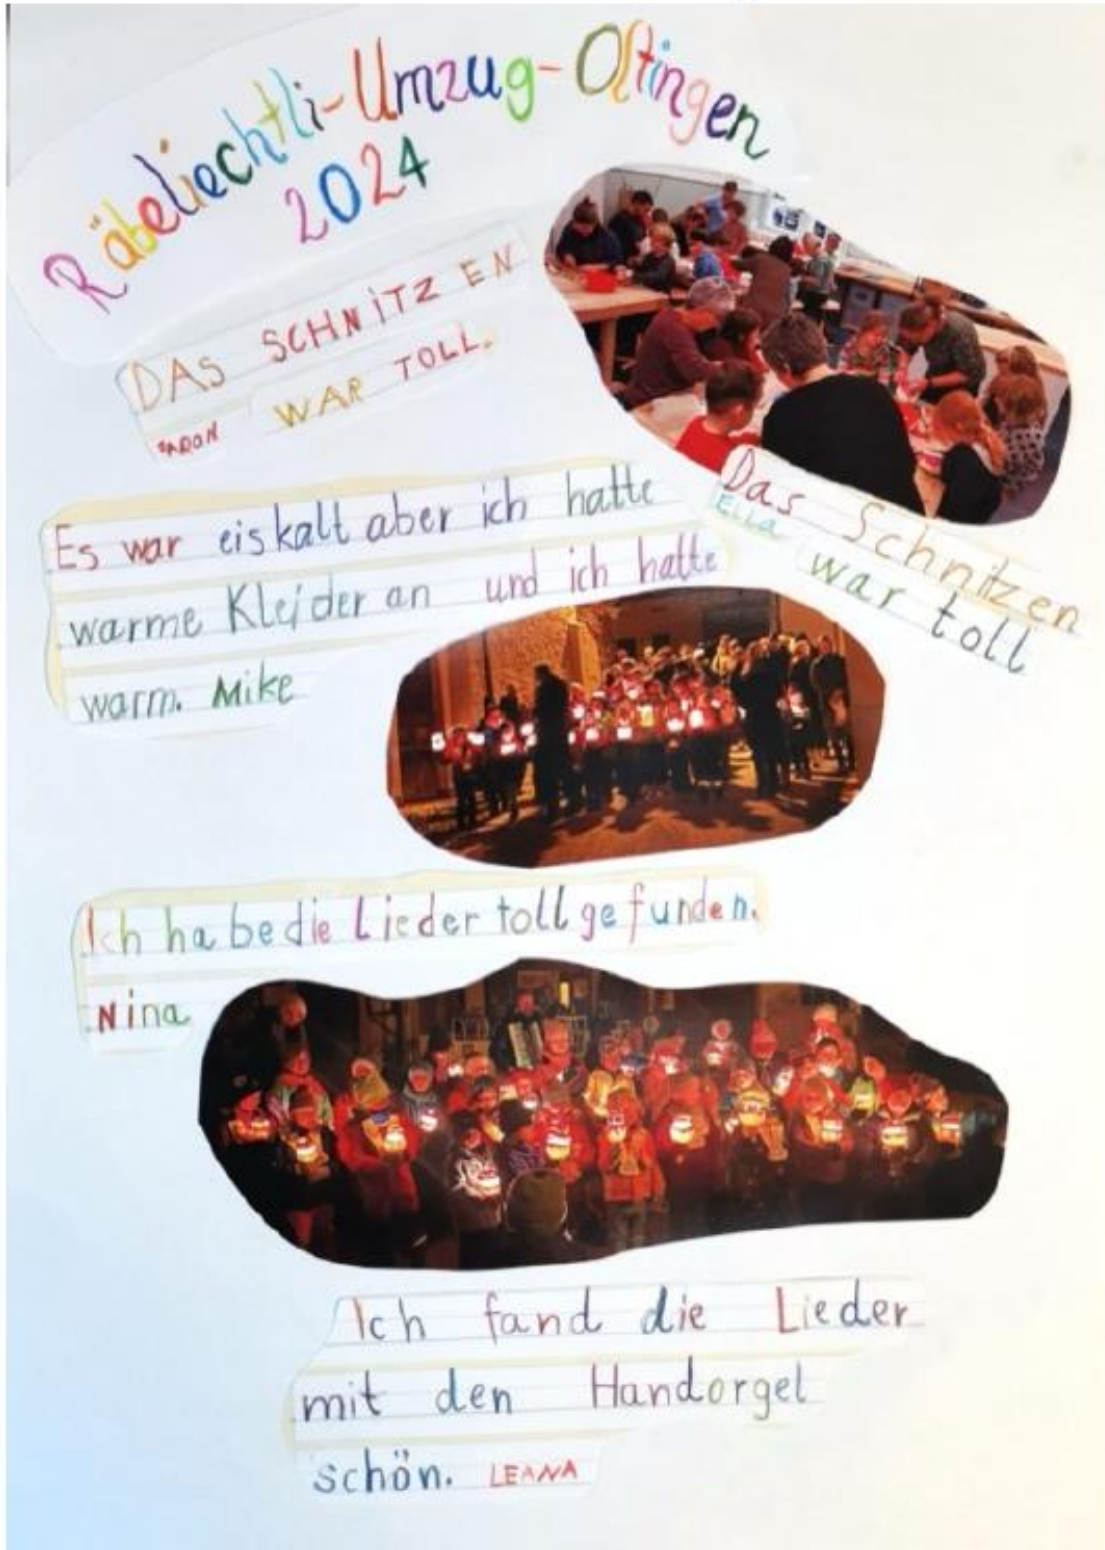 Räbeliechtli-Umzug-Oltingen
2024
DAS SCHNITZEN
WAR TOLL.
Das Schnitzen
Ella
war toll
Es war eiskalt aber ich hatte
warme Kleider an und ich hatte
warm. Mike
Ich habe die Lieder toll gefunden.
Nina
Ich fand die Lieder
mit den Handorgel
schön. LEANA